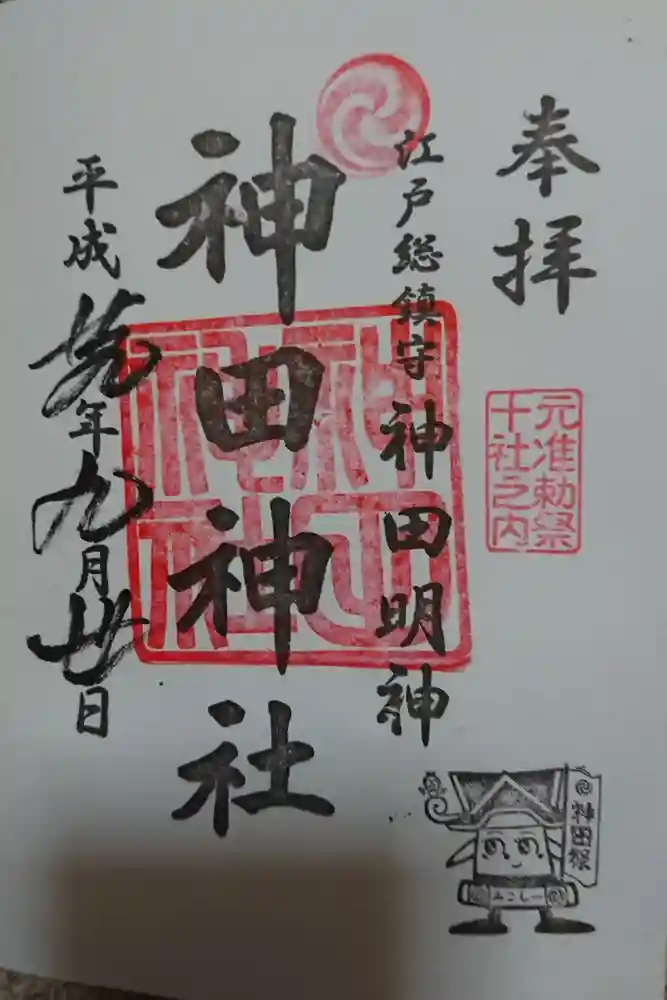 奉拝
元准勅祭
十社之内
江戸総鎮守 神田明神
神田神社
神田
神社
平成廿九年九月廿日
神田祭
みこしー